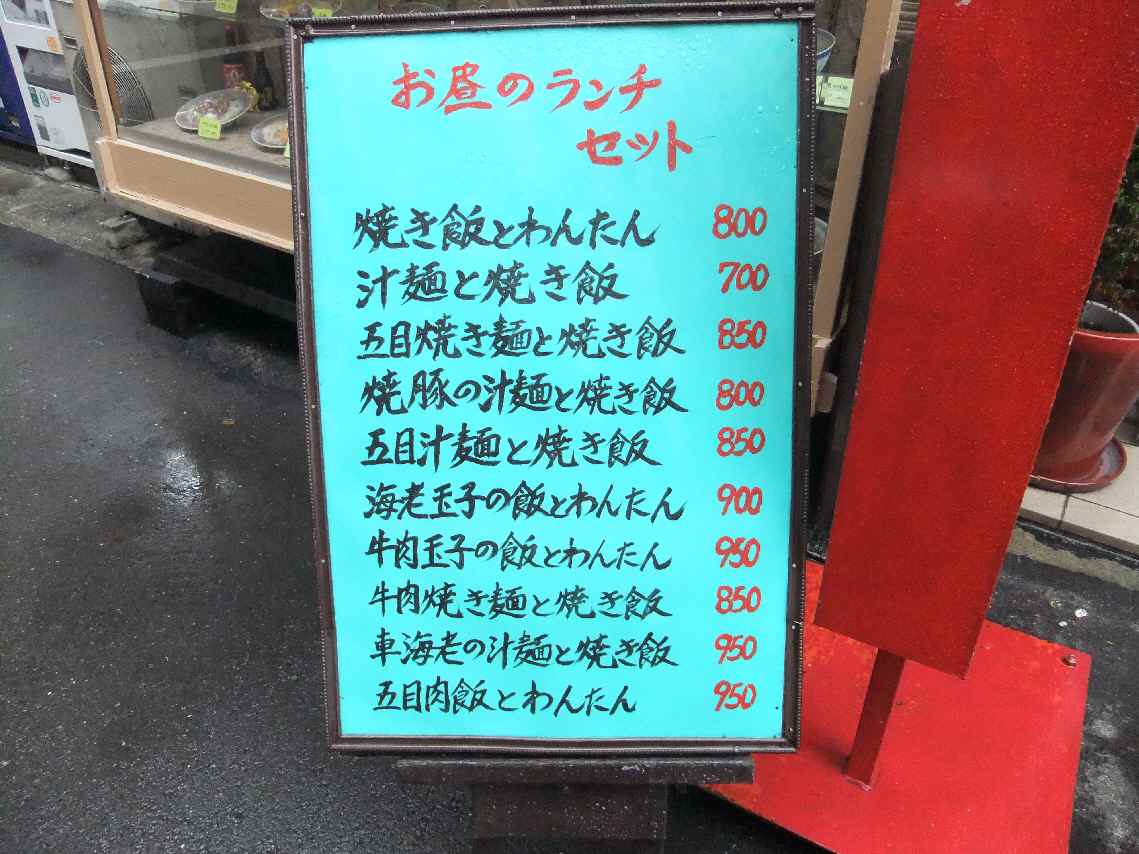 お昼のランチ
セット
焼き飯とわんたん 800
汁麺と焼き飯 700
五目焼き麺と焼き飯 850
焼豚の汁麺と焼き飯 800
五目汁麺と焼き飯 850
海老玉子の飯とわんたん 900
牛肉玉子の飯とわんたん 950
牛肉焼き麺と焼き飯 850
車海老の汁麺と焼き飯 950
五目肉飯とわんたん 950